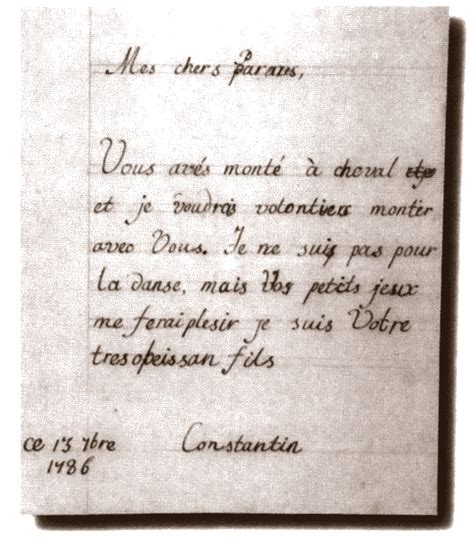 Mes chers Parans,
Vous avés monté à cheval
et je voudrais volontiers monter
avec Vous. Je ne suis pas pour
la danse, mais Vos petits jeux
me ferai plesir je suis Votre
tres obeissan fils
ce 13 7bre
1786
Constantin